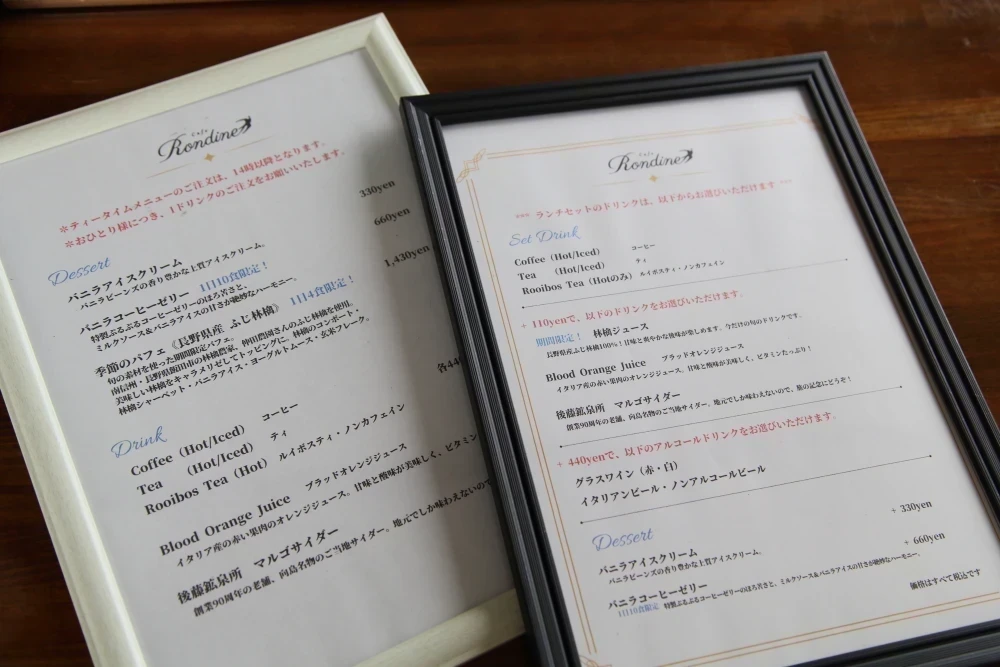 Cafe
Rondine
※ティータイムメニューのご注文は、14時以降となります。
※おひとり様につき、1ドリンクのご注文をお願いいたします。
Dessert
330yen
バニラアイスクリーム
バニラビーンズの香り豊かな上質アイスクリーム。
660yen
バニラコーヒーゼリー 1日10食限定!
特製ぷるぷるコーヒーゼリーのほろ苦さと、
ミルクソース&バニラアイスの甘さが絶妙なハーモニー。
1,430yen
季節のパフェ《長野県産 ふじ林檎》 1日4食限定!
旬の素材を使った期間限定パフェ。
南信州・長野県飯田市の林檎農家、仲田農園さんのふじ林檎を使用。
美味しい林檎をキャラメリゼしてトッピングに。林檎のコンポート・
林檎シャーベット・バニラアイス・ヨーグルトムース・玄米フレーク。
Drink
各44
Coffee (Hot/Iced) コーヒー
Tea (Hot/Iced) ティ
Rooibos Tea (Hot) ルイボスティ・ノンカフェイン
Blood Orange Juice ブラッドオレンジジュース
イタリア産の赤い果肉のオレンジジュース。甘味と酸味が美味しく、ビタミン
後藤鉱泉所 マルゴサイダー
創業90周年の老舗、向島名物のご当地サイダー。地元でしか味わえないので
Cafe
Rondine
*** ランチセットのドリンクは、以下からお選びいただけます ***
Set Drink
Coffee (Hot/Iced) コーヒー
Tea (Hot/Iced) ティ
Rooibos Tea (Hotのみ) ルイボスティ・ノンカフェイン
+ 110yenで、以下のドリンクをお選びいただけます。
期間限定! 林檎ジュース
長野県産ふじ林檎100%!甘味と爽やかな後味が楽しめます。今だけの旬のドリンクです。
Blood Orange Juice ブラッドオレンジジュース
イタリア産の赤い果肉のオレンジジュース。甘味と酸味が美味しく、ビタミンたっぷり!
後藤鉱泉所 マルゴサイダー
創業90周年の老舗、向島名物のご当地サイダー。地元でしか味わえないので、旅の記念にどうぞ!
+ 440yenで、以下のアルコールドリンクをお選びいただけます。
グラスワイン(赤・白)
イタリアンビール・ノンアルコールビール
Dessert
+ 330yen
バニラアイスクリーム
バニラビーンズの香り豊かな上質アイスクリーム。
+ 660yen
バニラコーヒーゼリー
1日10食限定 特製ぷるぷるコーヒーゼリーのほろ苦さと、ミルクソース&バニラアイスの甘さが絶妙なハーモニー。
価格はすべて税込です